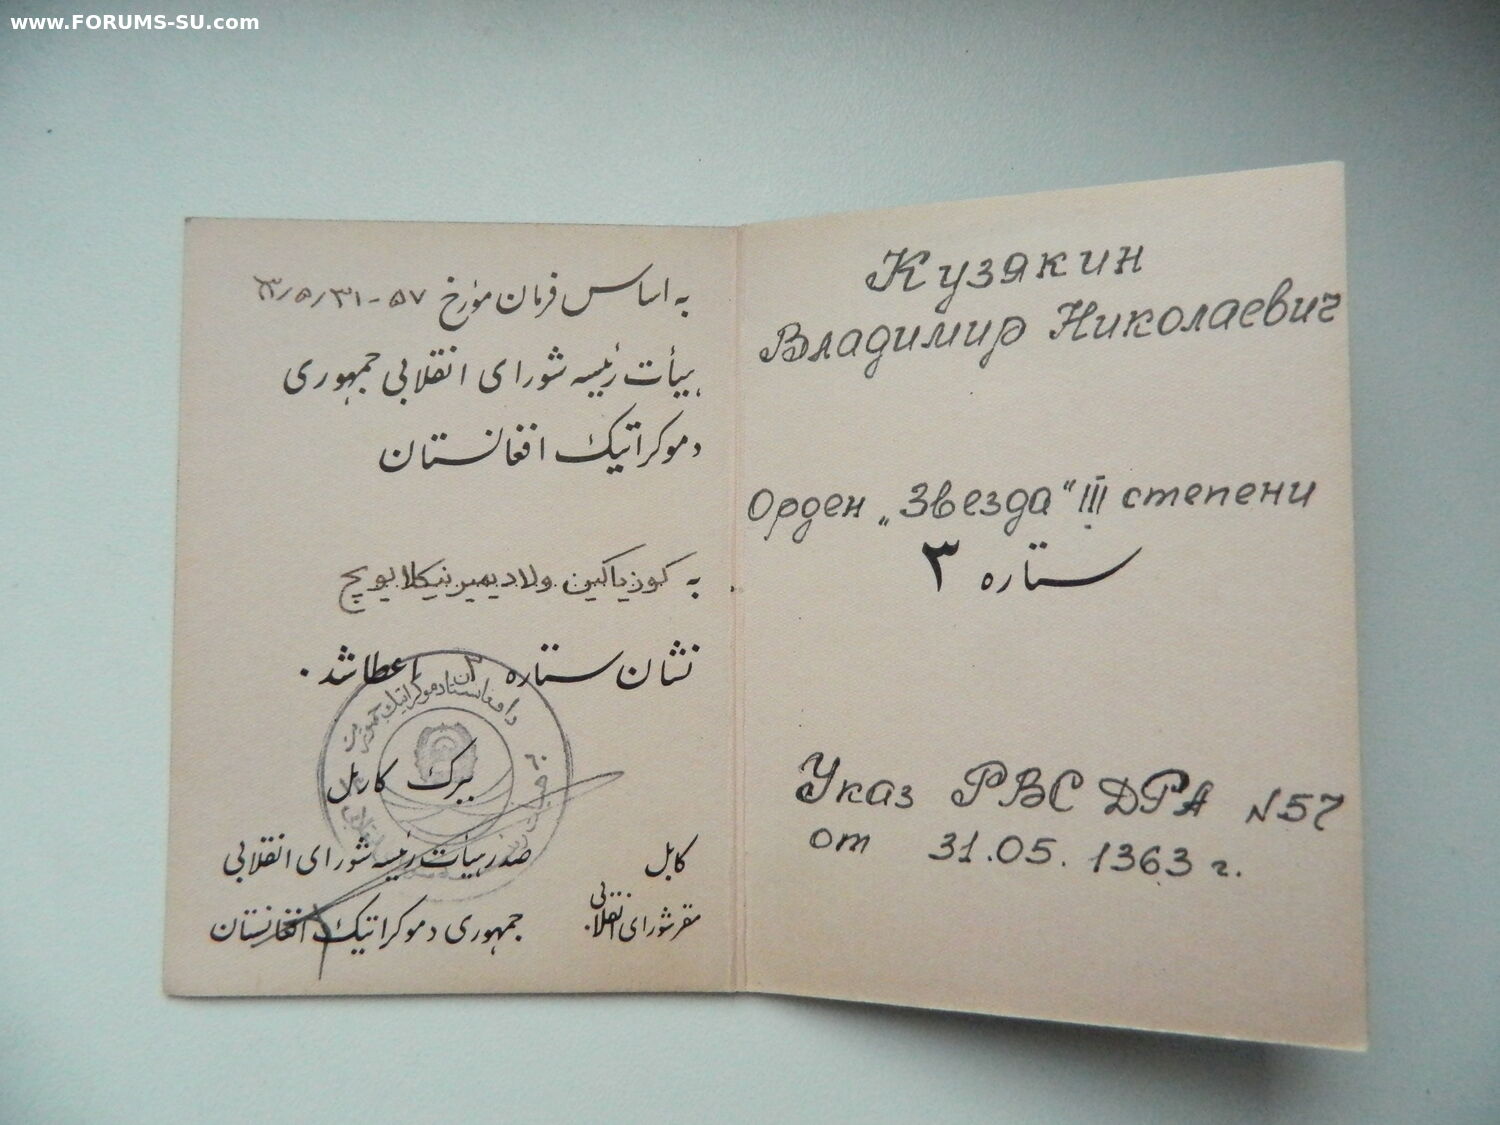 www.FORUMS-SU.com
به اساس فرمان مؤرخ ۵۷-۶۳/۵/۳۱
هیأت رئیسه شورای انقلابی جمهوری
دموکراتیک افغانستان
به کوزیاکین ولادیمیر نیکلایویچ
نشان ستاره ۳ اعطا شد.
ببرک کارمل
صدر هیأت رئیسه شورای انقلابی
جمهوری دموکراتیک افغانستان
کابل
مقر شورای انقلابی
Кузякин
Владимир Николаевич
Орден „Звезда“ III степени
ستاره ۳
Указ РВС ДРА N57
от 31.05.1363 г.